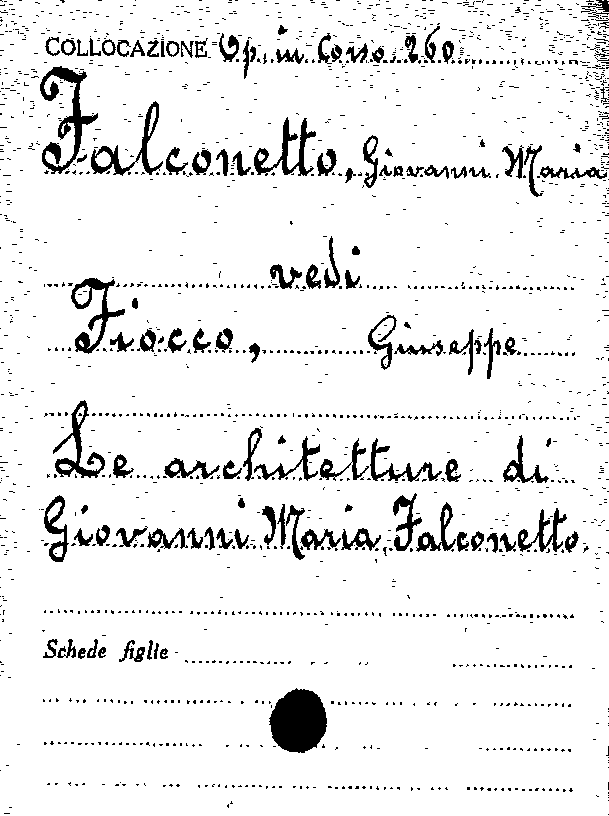 COLLOCAZIONE Op. in Corso 260
Falconetto, Giovanni Maria
vedi
Fiocco, Giuseppe
Le architetture di
Giovanni Maria Falconetto.
Schede figlie